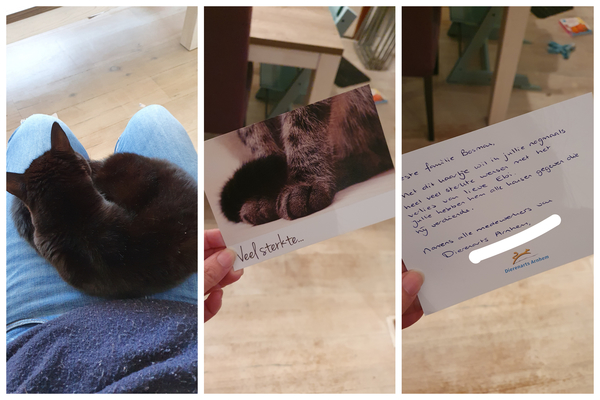 Veel sterkte...
ste familie Bosman,
Met dit kaartje wil ik jullie nogmaals
heel veel sterkte wensen met het
verlies van lieve Ebi.
Jullie hebben hem alle kansen gegeven die
hij verdiende.
Namens alle medewerkers van
Dierenarts Arnhem,
Dierenarts Arnhem